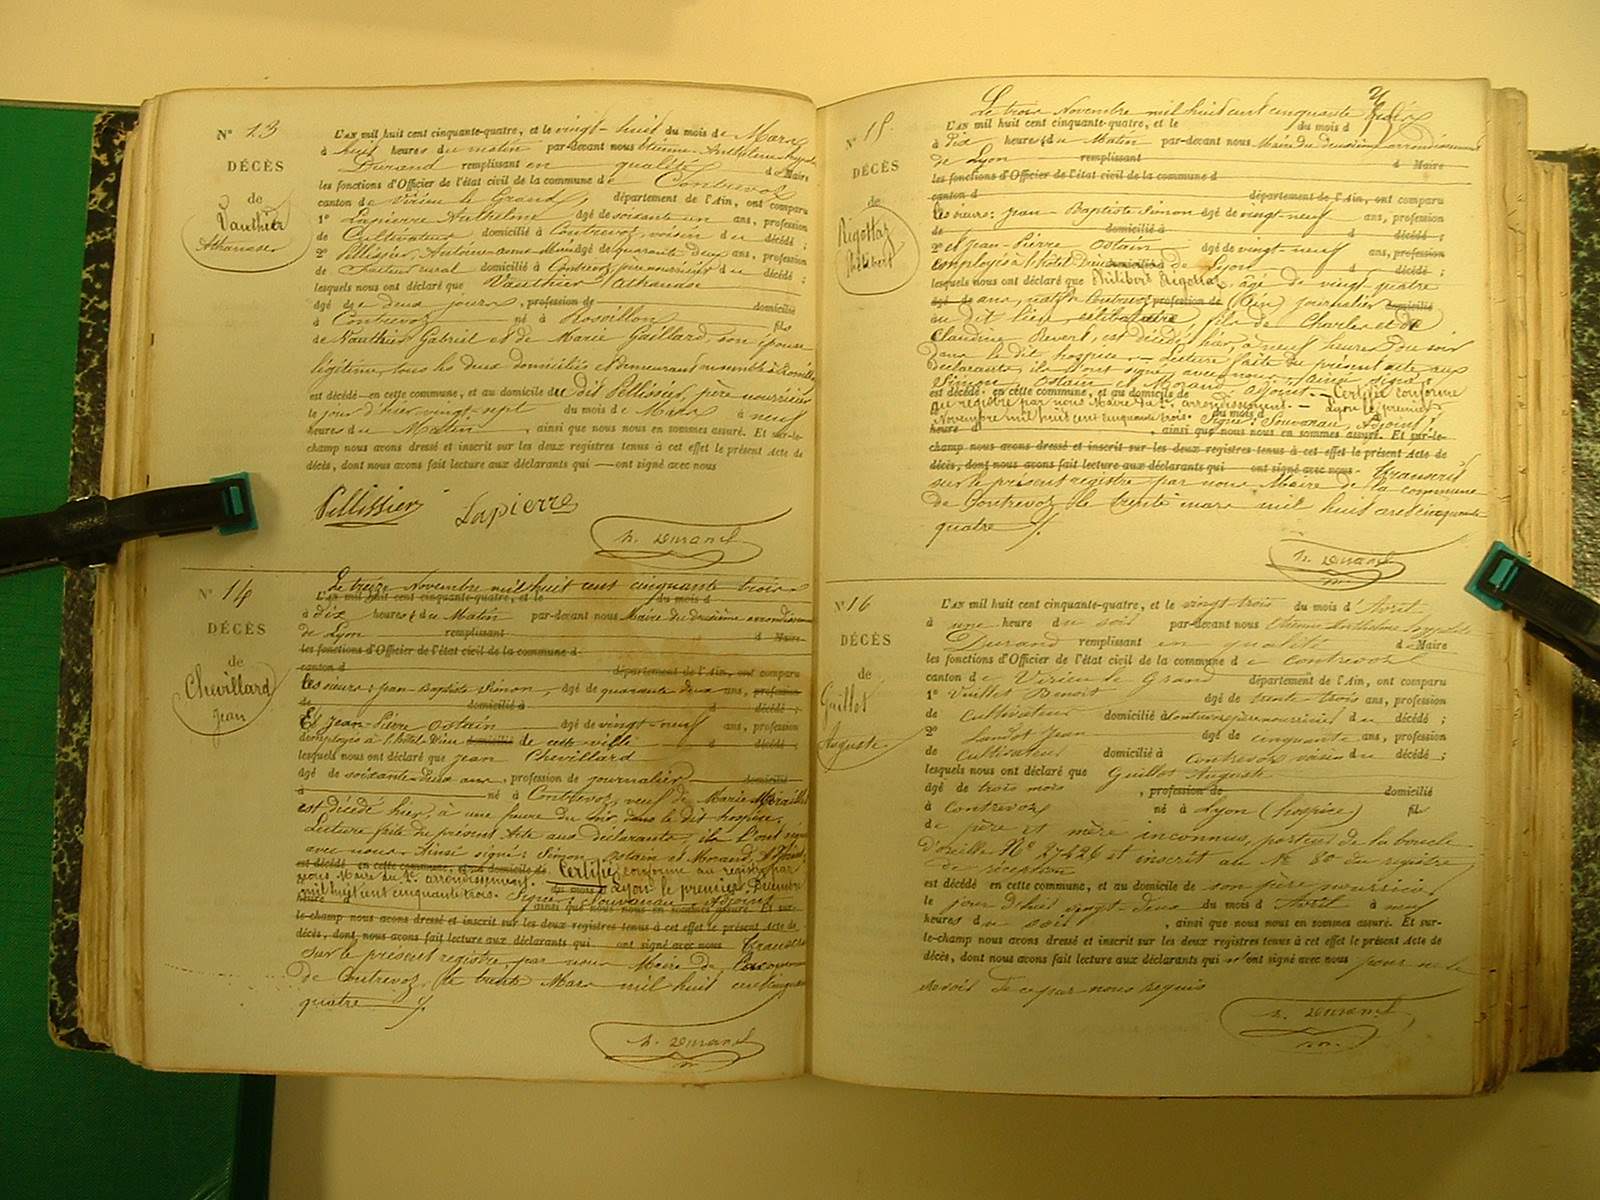 N° 13
DÉCÈS
de
Vauthier
Athanase
L'AN mil huit cent cinquante-quatre, et le vingt-huit du mois de Mars
à huit heures du matin par-devant nous Etienne Anthelme
Durand remplissant en qualité d Maire
les fonctions d'Officier de l'état civil de la commune de Contrevoz
canton de Virieu le Grand, département de l'Ain, ont comparu
1° Lapierre Anthelme âgé de soixante un ans, profession
de Cultivateur domicilié à Contrevoz, voisin du décédé ;
2° Pellissier, Antoine âgé de quarante deux ans, profession
de facteur rural domicilié à Contrevoz, père nourricier du décédé ;
lesquels nous ont déclaré que Vauthier Athanase
âgé de deux jours, profession de domicilié
à Contrevoz né à Rossillon fils
de Vauthier Gabriel et de Marie Gaillard, son épouse
légitime, tous les deux domiciliés et demeurant ensemble à Rossillon
est décédé en cette commune, et au domicile du dit Pellissier, père nourricier
le jour d'hier vingt-sept du mois de Mars à neuf
heures du Matin, ainsi que nous nous en sommes assuré. Et sur-le-
champ nous avons dressé et inscrit sur les deux registres tenus à cet effet le présent Acte de
décès, dont nous avons fait lecture aux déclarants qui ont signé avec nous
Pellissier Lapierre
h. Durand
N° 14
DÉCÈS
de
Chevillard
Jean
Le treize Novembre mil huit cent cinquante trois
L'AN mil huit cent cinquante-quatre, et le du mois d
à dix heures du Matin par-devant nous Maire du deuxième arrondissement
de Lyon remplissant d Maire
les fonctions d'Officier de l'état civil de la commune d
canton d département de l'Ain, ont comparu
les sieurs : Jean-Baptiste Simon, âgé de quarante deux ans, profession
de domicilié à d décédé ;
Et Jean-Pierre Ostain âgé de vingt-neuf ans, profession
d'employés à l'hôtel-Dieu domicilié de cette ville d décédé ;
lesquels nous ont déclaré que Jean Chevillard
âgé de soixante-deux ans, profession de journalier domicilié
à né à Contrevoz, veuf de Marie
est décédé hier, à une heure du soir, dans le dit hospice.
Lecture faite du présent Acte aux déclarants, ils l'ont signé
avec nous. Ainsi signé : Simon, Ostain et Morand, Adjoint.
est décédé en cette commune, et au domicile de Certifié conforme au registre par
nous Maire du 2e arrondissement. du mois d Lyon le premier Décembre
mil huit cent cinquante trois. Signé : Souvanau Adjoint
heure , ainsi que nous nous en sommes assuré. Et sur-
le-champ nous avons dressé et inscrit sur les deux registres tenus à cet effet le présent Acte de
décès, dont nous avons fait lecture aux déclarants qui ont signé avec nous Transcrit
sur le présent registre par nous Maire de la commune
de Contrevoz, le trente Mars mil huit cent cinquante
quatre
h. Durand
N° 15
DÉCÈS
de
Rigottaz
Philibert
Le trois Novembre mil huit cent cinquante trois
L'AN mil huit cent cinquante-quatre, et le du mois d
à dix heures du Matin par-devant nous Maire du deuxième arrondissement
de Lyon remplissant d Maire
les fonctions d'Officier de l'état civil de la commune d
canton d département de l'Ain, ont comparu
les sieurs : Jean-Baptiste Simon âgé de vingt neuf ans, profession
de domicilié à d décédé ;
2° et Jean-Pierre Ostain âgé de vingt-neuf ans, profession
employés à l'hôtel-Dieu domicilié à de Lyon d décédé ;
lesquels nous ont déclaré que Philibert Rigottaz, âgé de vingt quatre
âgé de ans, natif de Contrevoz profession de (Ain) journalier domicilié
au dit lieu, célibataire fils de Charles et de
Claudine Revert, est décédé hier, à neuf heures du soir
dans le dit hospice. Lecture faite du présent acte aux
déclarants, ils l'ont signé avec nous. Ainsi signé :
Simon, Ostain et Morand adjoint.
est décédé en cette commune, et au domicile de Certifié conforme
au registre par nous Maire du 2e arrondissement. Lyon le premier
Novembre mil huit cent cinquante trois. du mois d Signé : Souvanau, Adjoint
heure d , ainsi que nous nous en sommes assuré. Et sur-le-
champ nous avons dressé et inscrit sur les deux registres tenus à cet effet le présent Acte de
décès, dont nous avons fait lecture aux déclarants qui ont signé avec nous. Transcrit
sur le présent registre par nous Maire de la commune
de Contrevoz, le trente mars mil huit cent cinquante
quatre
h. Durand
N° 16
DÉCÈS
de
Guillot
Auguste
L'AN mil huit cent cinquante-quatre, et le vingt trois du mois d'Avril
à une heure du soir par-devant nous Etienne Anthelme hyppolite
Durand remplissant en qualité d Maire
les fonctions d'Officier de l'état civil de la commune de Contrevoz
canton de Virieu le Grand département de l'Ain, ont comparu
1° Vuillet Benoit âgé de trente trois ans, profession
de Cultivateur domicilié à Contrevoz père nourricier du décédé ;
2° Landot Jean âgé de cinquante ans, profession
de Cultivateur domicilié à Contrevoz voisin du décédé ;
lesquels nous ont déclaré que Guillot Auguste
âgé de trois mois , profession de domicilié
à Contrevoz né à Lyon (hospice) fils
de père et mère inconnus, porteur de la boucle
d'oreille N° 27426 et inscrit au N° 80 du registre
de réception
est décédé en cette commune, et au domicile de son père nourricier
le jour d'hier vingt-deux du mois d'Avril à neuf
heures du soir , ainsi que nous nous en sommes assuré. Et sur-
le-champ nous avons dressé et inscrit sur les deux registres tenus à cet effet le présent Acte de
décès, dont nous avons fait lecture aux déclarants qui n'ont signé avec nous pour ne le
savoir de ce par nous requis
h. Durand